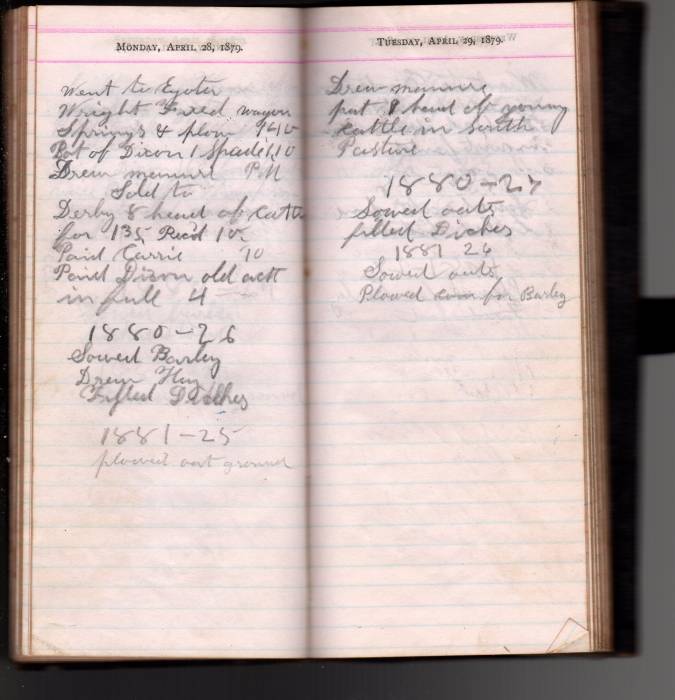 MONDAY, APRIL 28, 1879.
Went to Eyota
Wright Fixed wagon
Springs & plow
Bot of Dixon 1 Spade 1.10
Drew manure P.M
Sold to
Derby 8 head of Cattle
for 135 Recd 10.
Paid Carrie 70
Paid Dixon old actt
in full 4
1880-26
Sowed Barley
Drew Hay
Filled Ditches
1881-25
plowed oat ground
TUESDAY, APRIL 29, 1879.
Drew manure
put 8 head of young
cattle in South
Pasture
1880-27
Sowed oats
filled Diches
1881 26
Sowed oats
Plowed corn for Barley